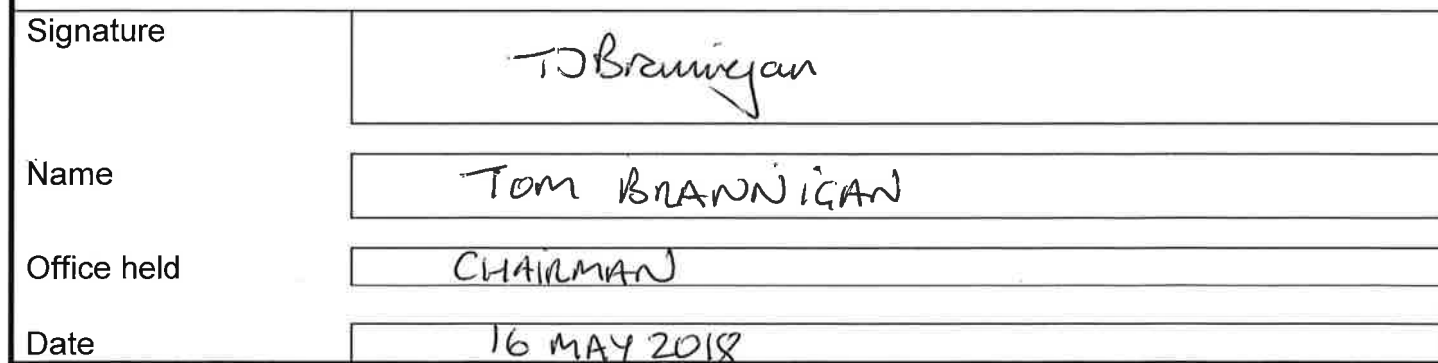 Signature TJBrannigan
Name TOM BRANNIGAN
Office held CHAIRMAN
Date 16 MAY 2018